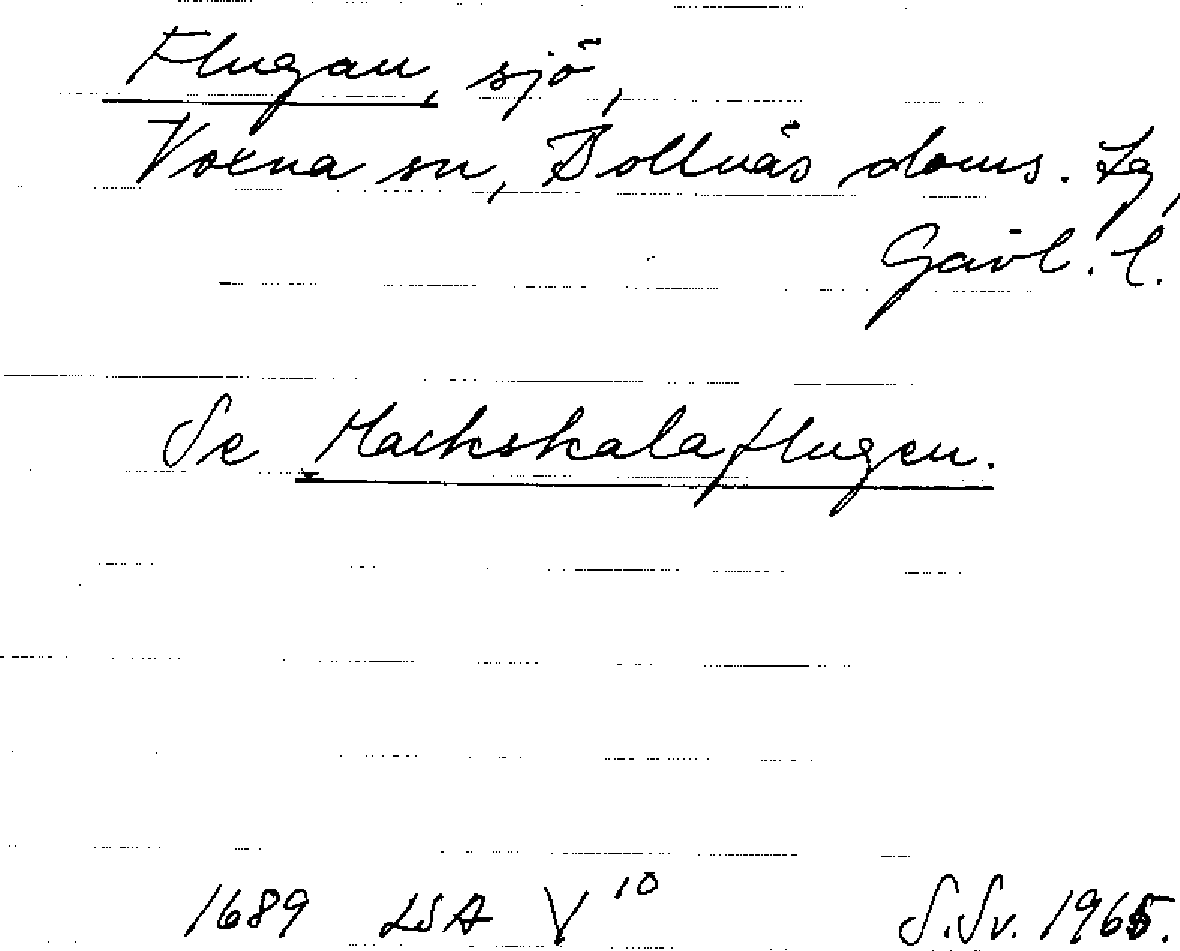 Flugan, sjö,
Voxna sn, Bollnäs doms. Lg,
Gävl. l.
Se Mackskalaflugen.
1689 LSA V 10 S.Sv. 1965.